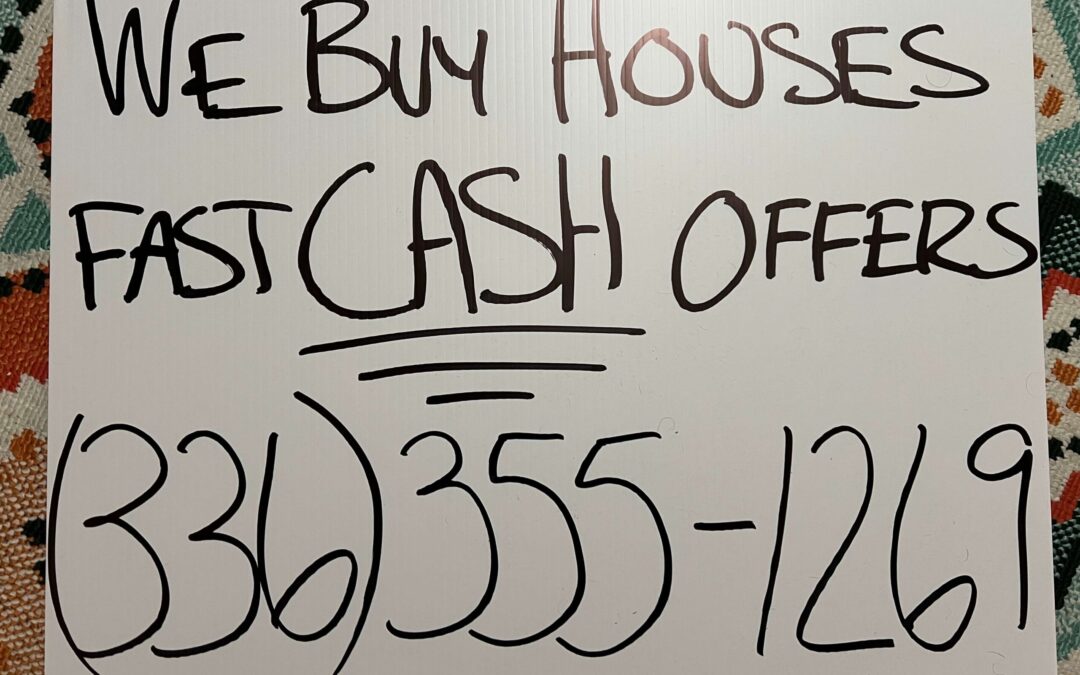 WE BUY HOUSES
FAST CASH OFFERS
(336) 355-1269